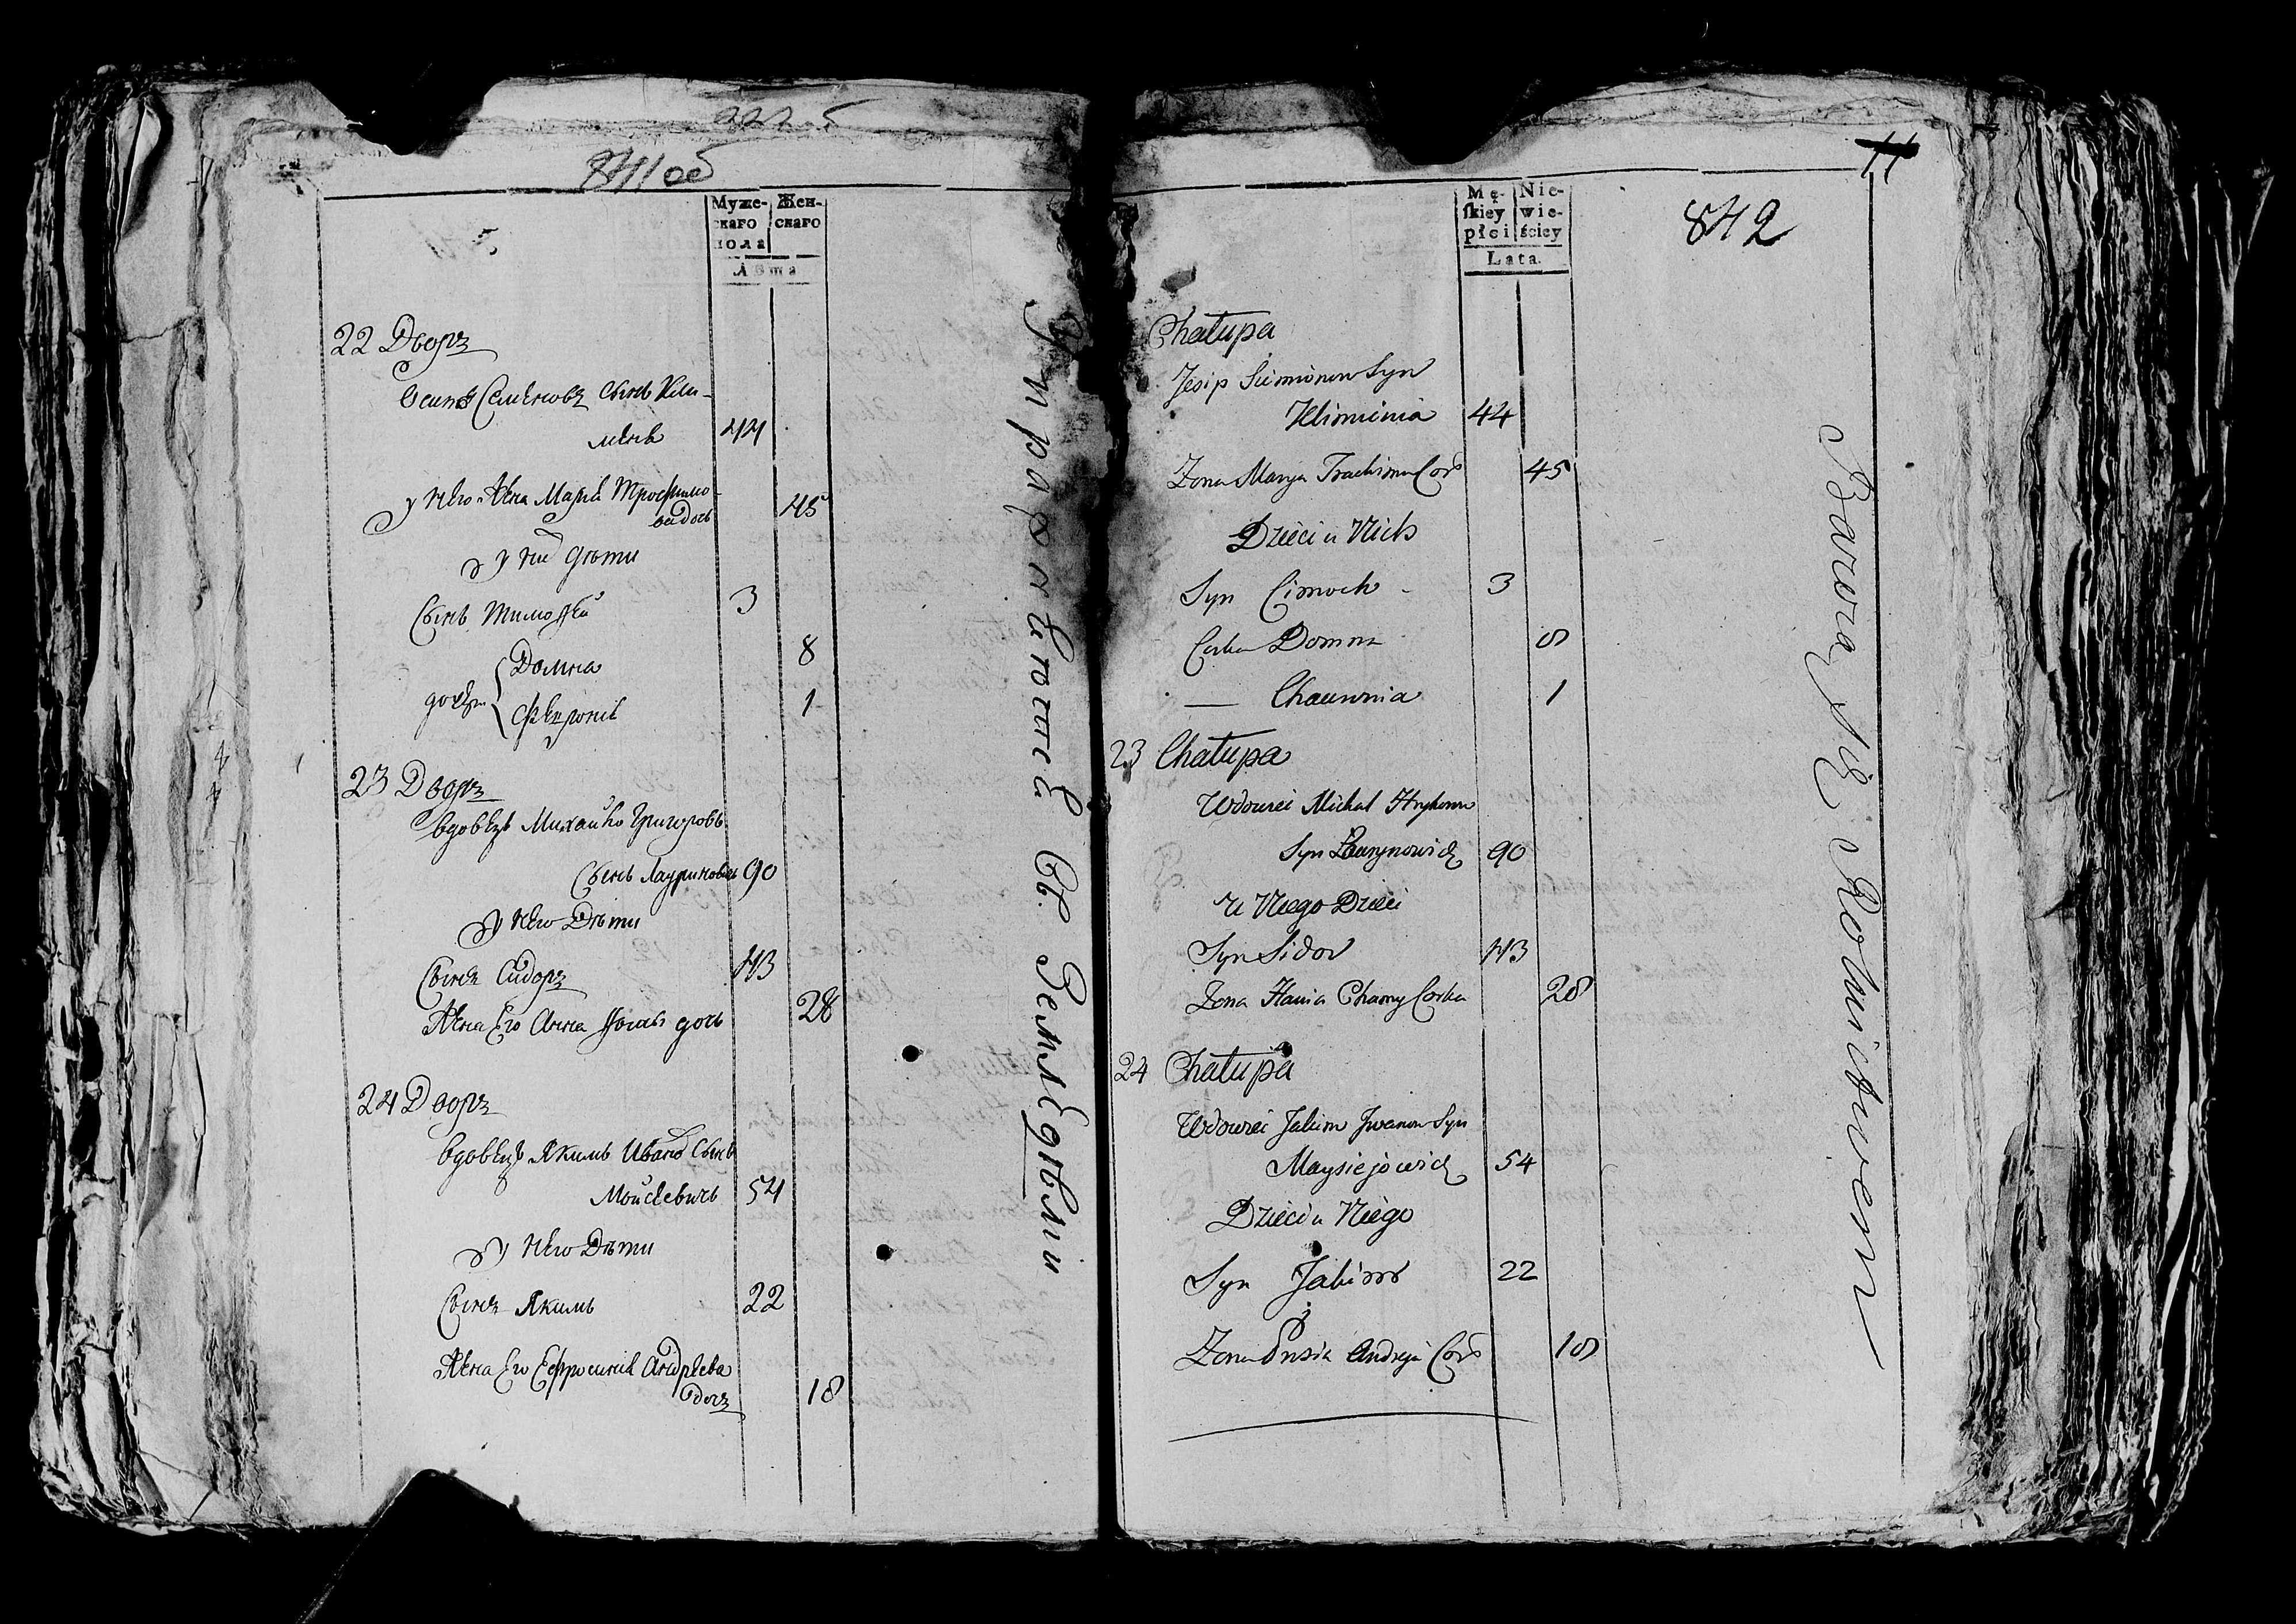 841 об
Муже-
скаго
пола
Жен-
скаго
Лѣта
22 Дворъ
Осипъ Семеновъ сынъ Кли-
меня 44
у него жена Марья Трофимо-
ва дочь 45
у них дѣти
Сынъ Тимофей 3
Домна 8
дочери
Февронья 1
23 Дворъ
вдовецъ Михайло Григоровъ
сынъ Лауриновичъ 90
у него Дѣти
Сынъ Сидоръ 43
Жена Его Анна дочь 28
24 Дворъ
вдовецъ Якимъ Иванов Сынъ
Мойсѣевичъ 54
у него Дѣти
Сынъ Якимъ 22
Жена Его Ефросинья Андрѣева
дочь 18
съ Землѣдѣлми
11
842
Mę-
skiey
płci
Nie-
wie-
ściey
Lata.
Chałupa
Jesip Siemionow Syn
Klimienia 44
Zona Marya Trachima Cor 45
Dzieci u Nich
Syn Cimoch - 3
Corka Domna 8
— Chauronia 1
23 Chałupa
Wdowiec Michał Hryhorow
Syn Laurynowicz 90
U Niego Dzieci
Syn Sidor 43
Zona Hania Chomy Corka 28
24 Chałupa
Wdowiec Jakim Jwanow Syn
Maysiejowicz 54
Dzieci u Niego
Syn Jakim 22
Zona Prosia Andreja Cor 18
Bawią się Rolnictwem